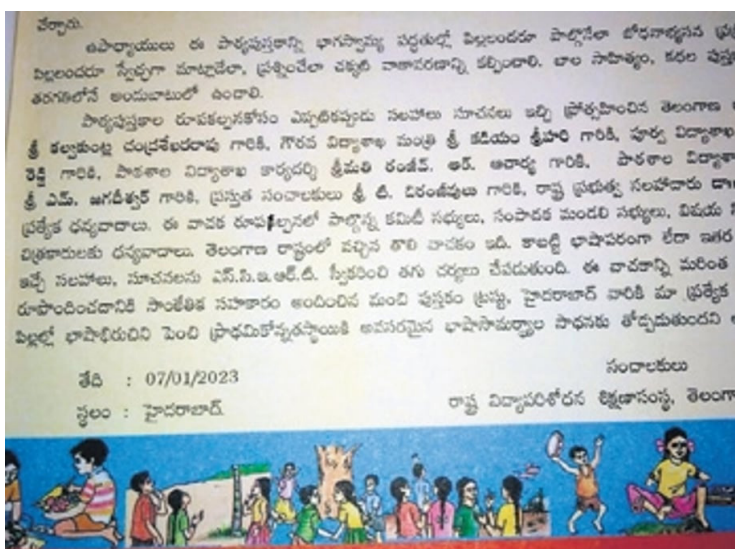 చేర్చారు.
ఉపాధ్యాయులు ఈ పాఠ్యపుస్తకాన్ని భాగస్వామ్య పద్ధతుల్లో పిల్లలందరూ పాల్గొనేలా బోధనాభ్యసన
పిల్లలందరూ స్వేచ్ఛగా మాట్లాడేలా, ప్రశ్నించేలా చక్కటి వాతావరణాన్ని కల్పించాలి. బాల సాహిత్యం, కథల
తరగతిలోనే అందుబాటులో ఉండాలి.
పాఠ్యపుస్తకాల రూపకల్పనకోసం ఎప్పటికప్పుడు సలహాలు సూచనలు ఇచ్చి ప్రోత్సహించిన తెలంగాణ
శ్రీ కల్వకుంట్ల చంద్రశేఖరరావు గారికి, గౌరవ విద్యాశాఖ మంత్రి శ్రీ కడియం శ్రీహరి గారికి, పూర్వ విద్యాశాఖ
రెడ్డి గారికి, పాఠశాల విద్యాశాఖ కార్యదర్శి శ్రీమతి రంజీవ్. ఆర్. ఆచార్య గారికి, పాఠశాల
శ్రీ ఎమ్. జగదీశ్వర్ గారికి, ప్రస్తుత సంచాలకులు శ్రీ టి. చిరంజీవులు గారికి, రాష్ట్ర ప్రభుత్వ సలహాదారు
ప్రత్యేక ధన్యవాదాలు. ఈ వాచక రూపకల్పనలో పాల్గొన్న కమిటీ సభ్యులు, సంపాదక మండలి సభ్యులు, విషయ
చిత్రకారులకు ధన్యవాదాలు. తెలంగాణ రాష్ట్రంలో వచ్చిన తొలి వాచకం ఇది. కాబట్టి భాషాపరంగా లేదా ఇతర
ఇచ్చే సలహాలు, సూచనలను ఎస్.సి.ఇ.ఆర్.టి. స్వీకరించి తగు చర్యలు చేపడుతుంది. ఈ వాచకాన్ని మరింత
రూపొందించడానికి సాంకేతిక సహకారం అందించిన మంచి పుస్తకం ట్రస్టు, హైదరాబాద్ వారికి మా ప్రత్యేక
పిల్లల్లో భాషాభిరుచిని పెంచి ప్రాథమికోన్నతస్థాయికి అవసరమైన భాషాసామర్థ్యాల సాధనకు తోడ్పడుతుందని
తేది : 07/01/2023
సంచాలకులు
స్థలం : హైదరాబాద్.
రాష్ట్ర విద్యాపరిశోధన శిక్షణాసంస్థ,